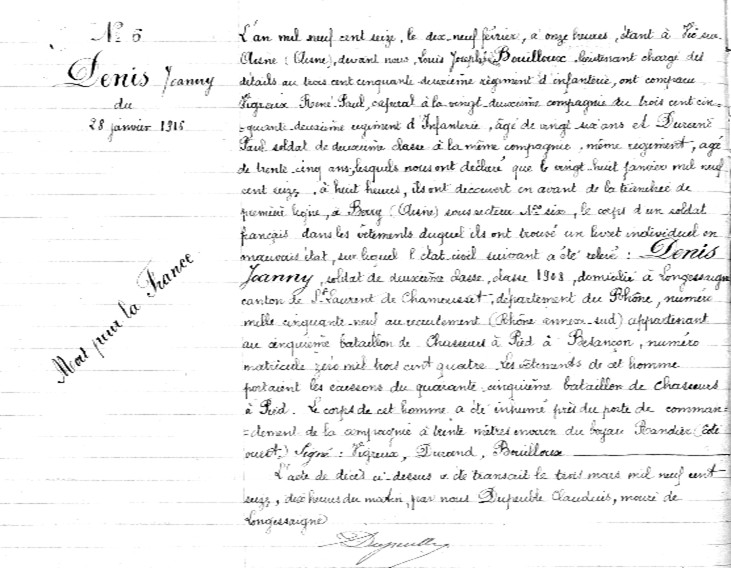 N° 5
Denis Jeanny
du
28 janvier 1916
Mort pour la France
L'an mil neuf cent seize, le dix-neuf février, à onze heures, étant à Vic-sur-
Aisne (Aisne), devant nous, Louis Joseph Bouilloux lieutenant chargé des
détails au trois cent cinquante deuxième régiment d'infanterie, ont comparu
Vigreux René Paul, caporal à la vingt-deuxième compagnie du trois cent cin-
-quante-deuxième régiment d'Infanterie, âgé de vingt six ans et Durand
Paul soldat de deuxième classe à la même compagnie, même régiment, âgé
de trente-cinq ans, lesquels nous ont déclaré que le vingt-huit janvier mil neuf
cent seize, à huit heures, ils ont découvert en avant de la tranchée de
première ligne, à Berry (Aisne) sous secteur N° six, le corps d'un soldat
français dans les vêtements duquel ils ont trouvé un livret individuel en
mauvais état, sur lequel l'état-civil suivant a été relevé : Denis
Jeanny, soldat de deuxième classe, classe 1908, domicilié à Longessaigne
canton de St Laurent de Chamousset, département du Rhône, numéro
mille cinquante-neuf au recrutement (Rhône annexe-sud) appartenant
au cinquième bataillon de Chasseurs à Pied à Besançon, numéro
matricule zéro mil trois cent quatre. Les vêtements de cet homme
portaient les écussons du quarante-cinquième bataillon de Chasseurs
à Pied. Le corps de cet homme a été inhumé près du poste de comman-
-dement de la compagnie à trente mètres environ du boyau Randier (côté
ouest) Signé : Vigreux, Durand, Bouilloux
L'acte de décès ci-dessus a été transcrit le trois mars mil neuf cent-
seize, dix heures du matin, par nous Dupeuble Claudius, maire de
Longessaigne
Dupeuble